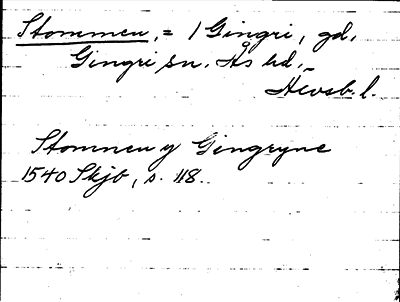 Stommen, = 1 Gingri, gd,
Gingri sn. Ås hd,
Älvsb. l.
Stomnen y Gingryne
1540 Skjb, s. 118.